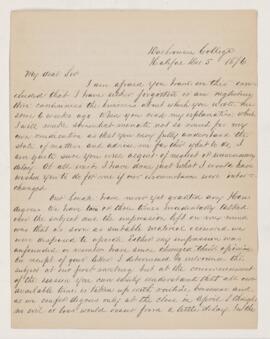 College
Halifax Dec 5 1876
My dear Sir
I am afraid you have in this concluded
that I have either forgotten or am neglecting
the business about which you wrote
me some 6 weeks ago. When you read my explanation, which
I will make somewhat minute, not so much for my
own vindication as that you may fully understand the
state of matters and advise me for that ought to do, I
am quite sure you will acquit of neglect or unnecessary
delay. At all events I have done just what I would have
wished you to do for me if our circumstances were interchanged.
Our Senate have never yet granted any Hon
degrees. We have two or three times incidentally talked
over the subject and the impression left on my mind
was that as soon as suitable material occurred we
were disposed to speedily. Either my impression was
unfounded or members have since changed their opinion
On receipt of your letter I determined to introduce the
subject at our first meeting but at the commencement
of the session you can easily understand that all our
available time is taken up with routine business and
as we confer degrees only at the close in April I thought
no evil at least would result from a little delay. In the